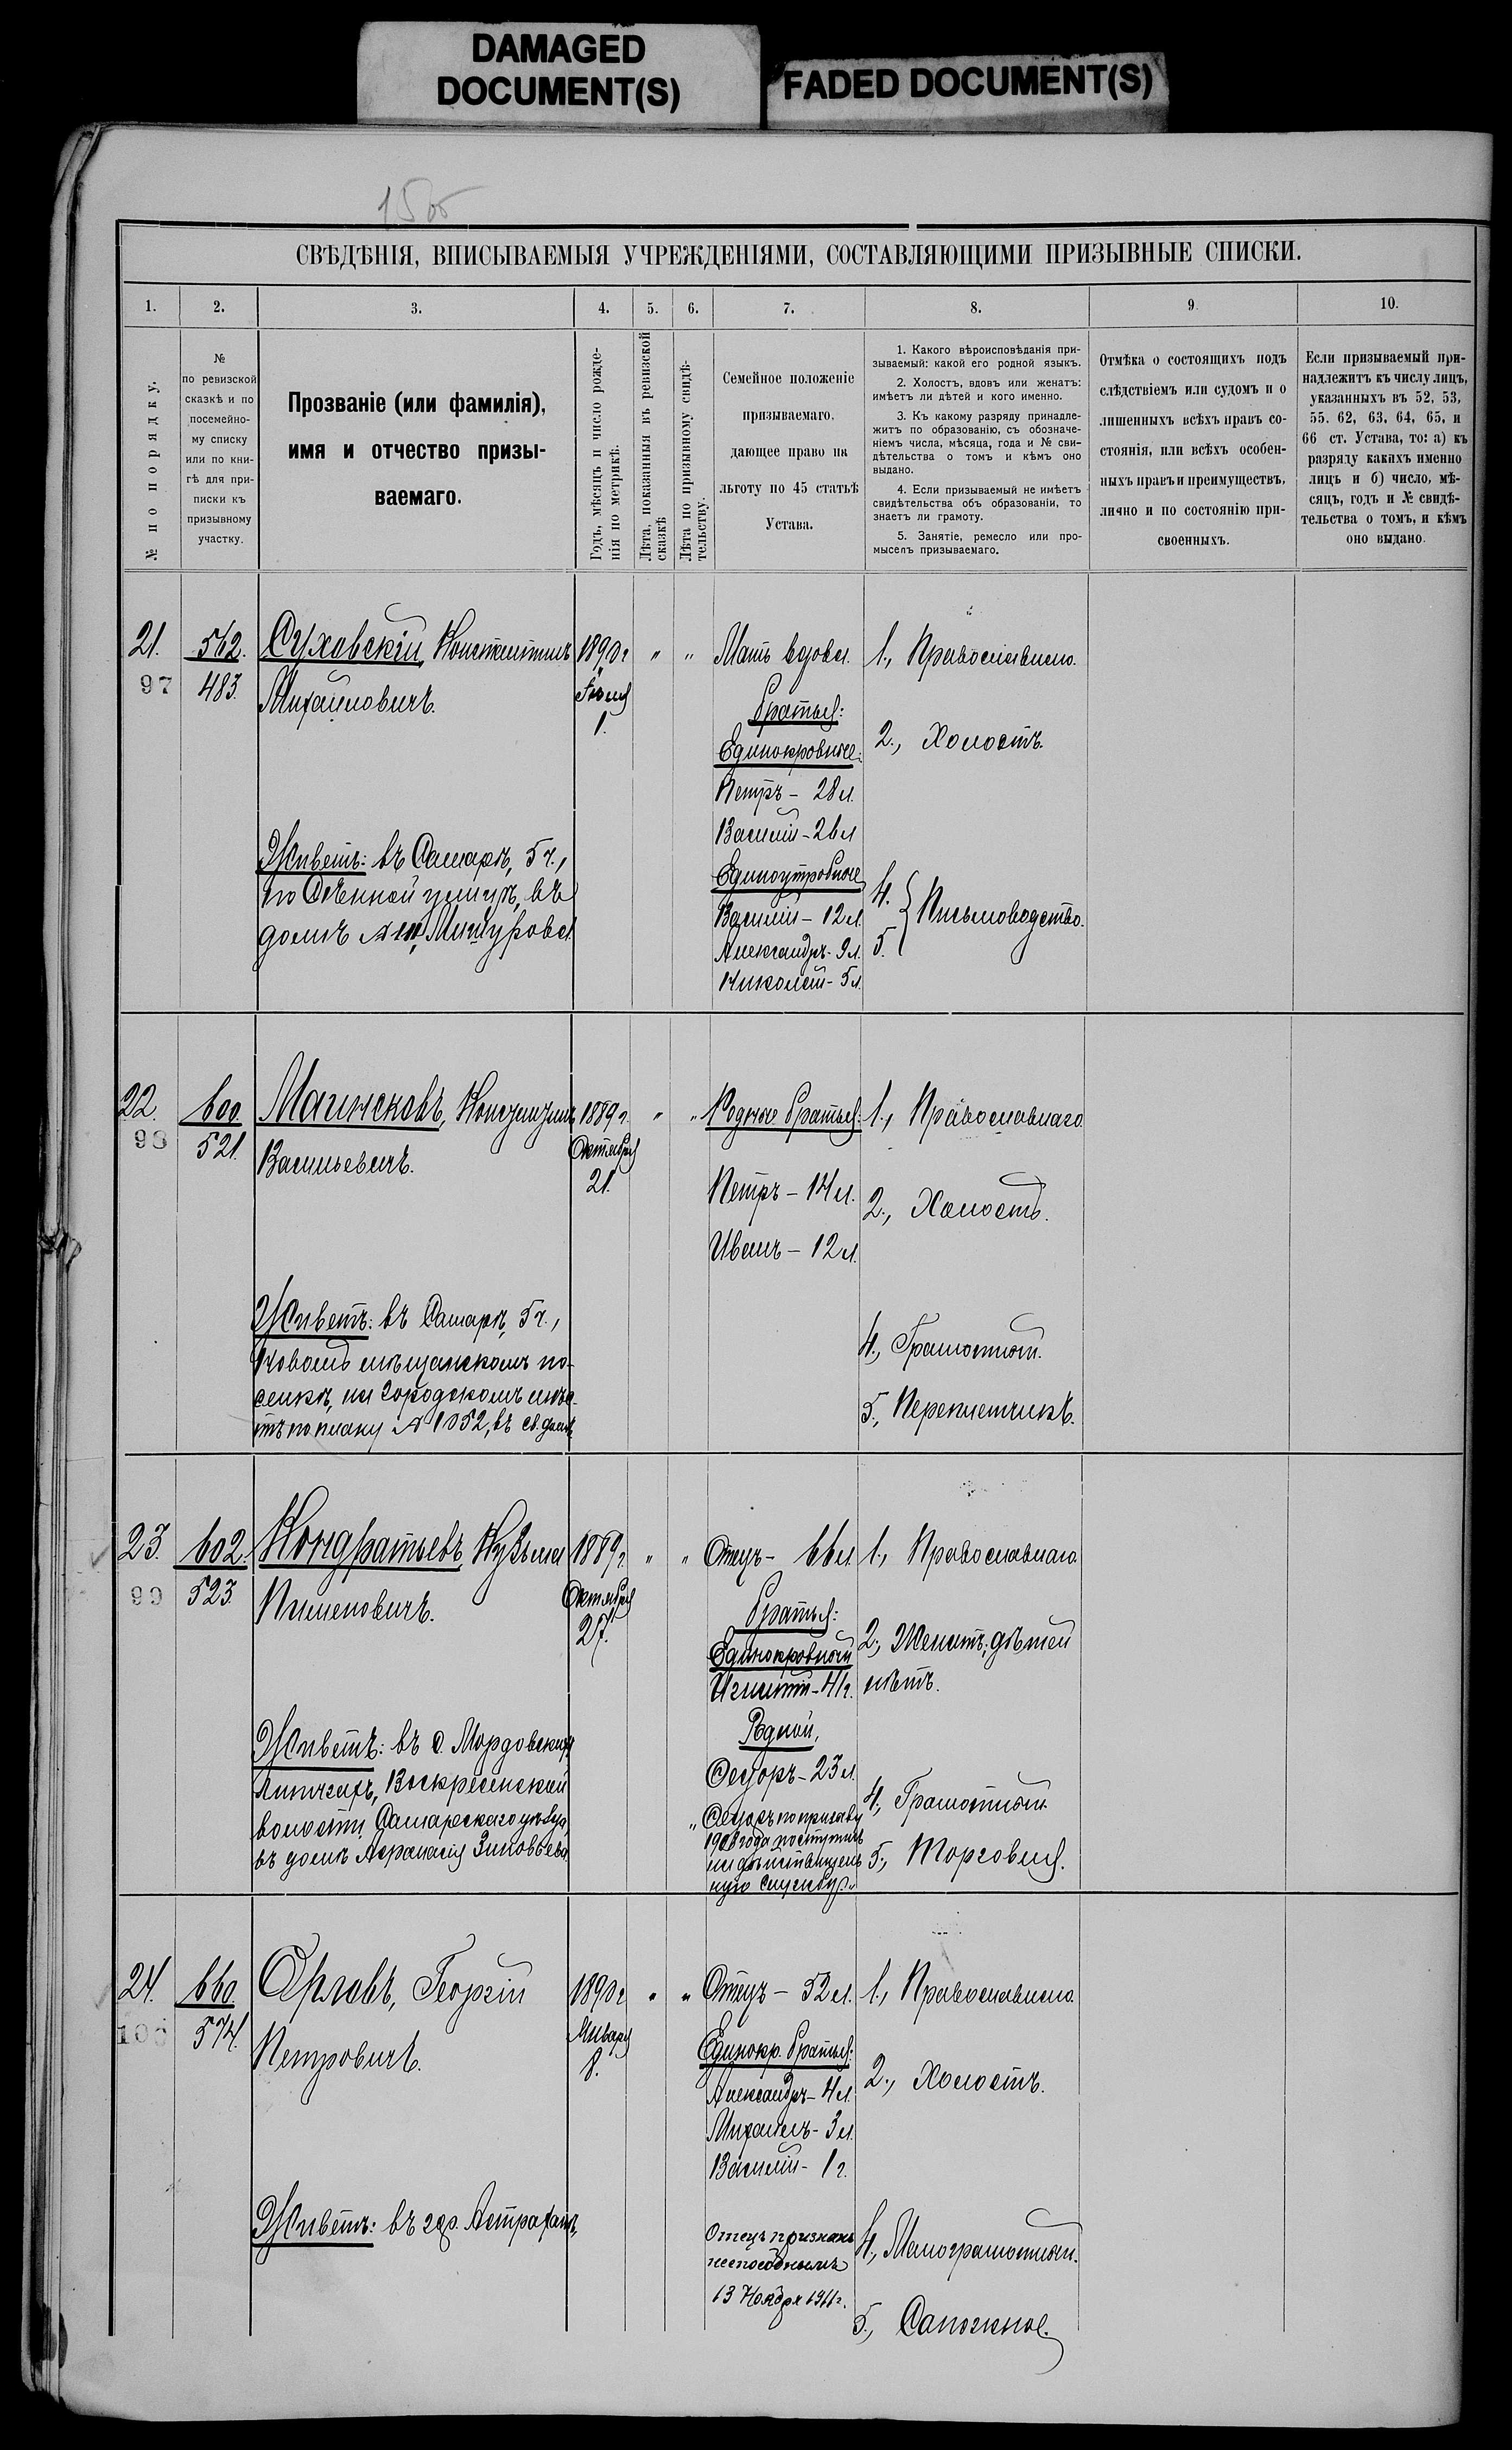 DAMAGED
DOCUMENT(S)
FADED DOCUMENT(S)
15об
СВѢДѢНІЯ, ВПИСЫВАЕМЫЯ УЧРЕЖДЕНІЯМИ, СОСТАВЛЯЮЩИМИ ПРИЗЫВНЫЕ СПИСКИ.
1.
2.
3.
4.
5.
6.
7.
8.
9.
10.
№ по порядку.
№
по ревизской
сказкѣ и по
посемейно-
му списку
или по кни-
гѣ для при-
писки къ
призывному
участку.
Прозваніе (или фамилія),
имя и отчество призы-
ваемаго.
Годъ, мѣсяцъ и число рожде-
нія по метрикѣ.
Лѣта, показанныя въ ревизской
сказкѣ
Лѣта по призывному свидѣ-
тельству.
Семейное положеніе
призываемаго,
дающее право на
льготу по 45 статьѣ
Устава.
1. Какого вѣроисповѣданія при-
зываемый: какой его родной языкъ.
2. Холостъ, вдовъ или женатъ:
имѣетъ ли дѣтей и кого именно.
3. Къ какому разряду принадле-
житъ по образованію, съ обозначе-
ніемъ числа, мѣсяца, года и № сви-
дѣтельства о томъ и кѣмъ оно
выдано.
4. Если призываемый не имѣетъ
свидѣтельства объ образованіи, то
знаетъ ли грамоту.
5. Занятіе, ремесло или про-
мыселъ призываемаго.
Отмѣка о состоящихъ подъ
слѣдствіемъ или судомъ и о
лишенныхъ всѣхъ правъ со-
стоянія, или всѣхъ особен-
ныхъ правъ и преимуществъ,
лично и по состоянію при-
своенныхъ.
Если призываемый при-
надлежитъ къ числу лицъ,
указанныхъ въ 52, 53,
55. 62, 63, 64, 65, и
66 ст. Устава, то: а) къ
разряду какихъ именно
лицъ и б) число, мѣ-
сяцъ, годъ и № свидѣ-
тельства о томъ, и кѣмъ
оно выдано.
21.
97
562.
483.
Суховскій, Константинъ
Михайловичъ.
Живетъ: въ Самарѣ, 5 ч.,
по Сѣнной улицѣ, въ
домѣ
1890 г
Іюня
1.
"
"
Мать вдова.
Братья:
Единокровные:
Петръ - 28 л.
Василій - 26 л
Единоутробные
Василій - 12 л.
Александръ - 9 л.
Николай - 5 л.
1., Православнаго.
2., Холостъ.
4.
5.
Письмоводство.
22.
98
600.
521.
Маинсковъ, Константинъ
Васильевичъ.
Живетъ: въ Самарѣ, 5 ч.,
Новомъ мѣщанскомъ по-
селкѣ, на городскомъ мѣс-
тѣ по плану № 1052, въ св. домѣ
1889 г.
Октября
21.
"
"
Родные братья:
Петръ - 14 л.
Иванъ - 12 л.
1., Православнаго
2., Холостъ.
4., Грамотный.
5., Переплетчикъ.
23.
99
602.
523.
Кондратьевъ, Кузьма
Пименовичъ.
Живетъ: въ с. Мордовскихъ
Липягахъ, Воскресенской
волости, Самарскаго уѣзда,
въ домѣ Афанасія Зиновьева.
1889 г.
Октября
27.
"
"
Отецъ - 66 л.
Братья:
Единокровный
Игнатій - 41 г.
Родной,
Ѳедоръ - 23 л.
"Ѳедоръ по призыву
1908 года поступилъ
на дѣйствитель-
ную службу."
1., Православнаго
2., Женатъ; дѣтей
нѣтъ.
4., Грамотный.
5., Торговля.
24.
100
660.
574.
Орловъ, Георгій
Петровичъ.
Живетъ: въ гор. Астрахани,
1890 г
Января
8.
"
"
Отецъ - 52 л.
Единокр. братья:
Александръ - 4 л.
Михаилъ - 3 л.
Василій - 1 г.
Отецъ признанъ
неспособнымъ
13 Ноября 1911 г.
1., Православнаго.
2., Холостъ.
4., Малограмотный.
5., Сапожное.